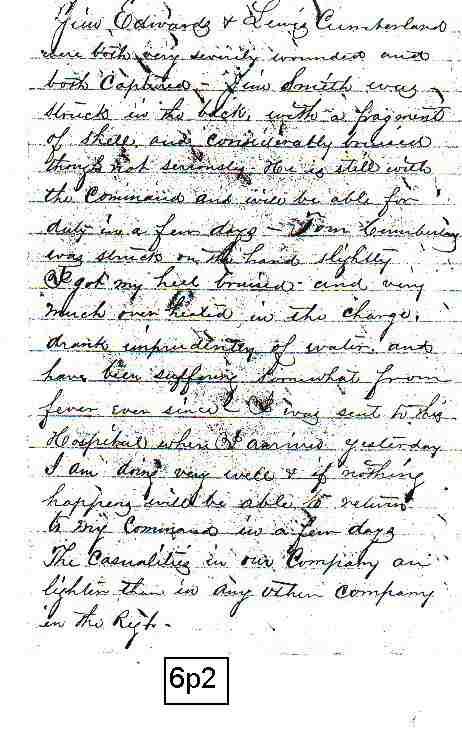 Jim Edwards & Lewis Cumberland
were both very severely wounded and
both Captured - Jim Smith was
struck in the back with a fragment
of shell and considerably bruised
though not seriously He is still with
the Command and will be able for
duty in a few days - Tom Cumberlan
was struck on the hand slightly
I got my heel bruised and very
much over heated in the charge,
drank imprudently of water and
have been suffering somewhat from
fever ever since - I was sent to this
Hospital where I arrived yesterday
I am doing very well & if nothing
happens will be able to return
to my Command in a few days
The Casualities in our Company are
lighter than in any other Company
in the Regt -
6p2